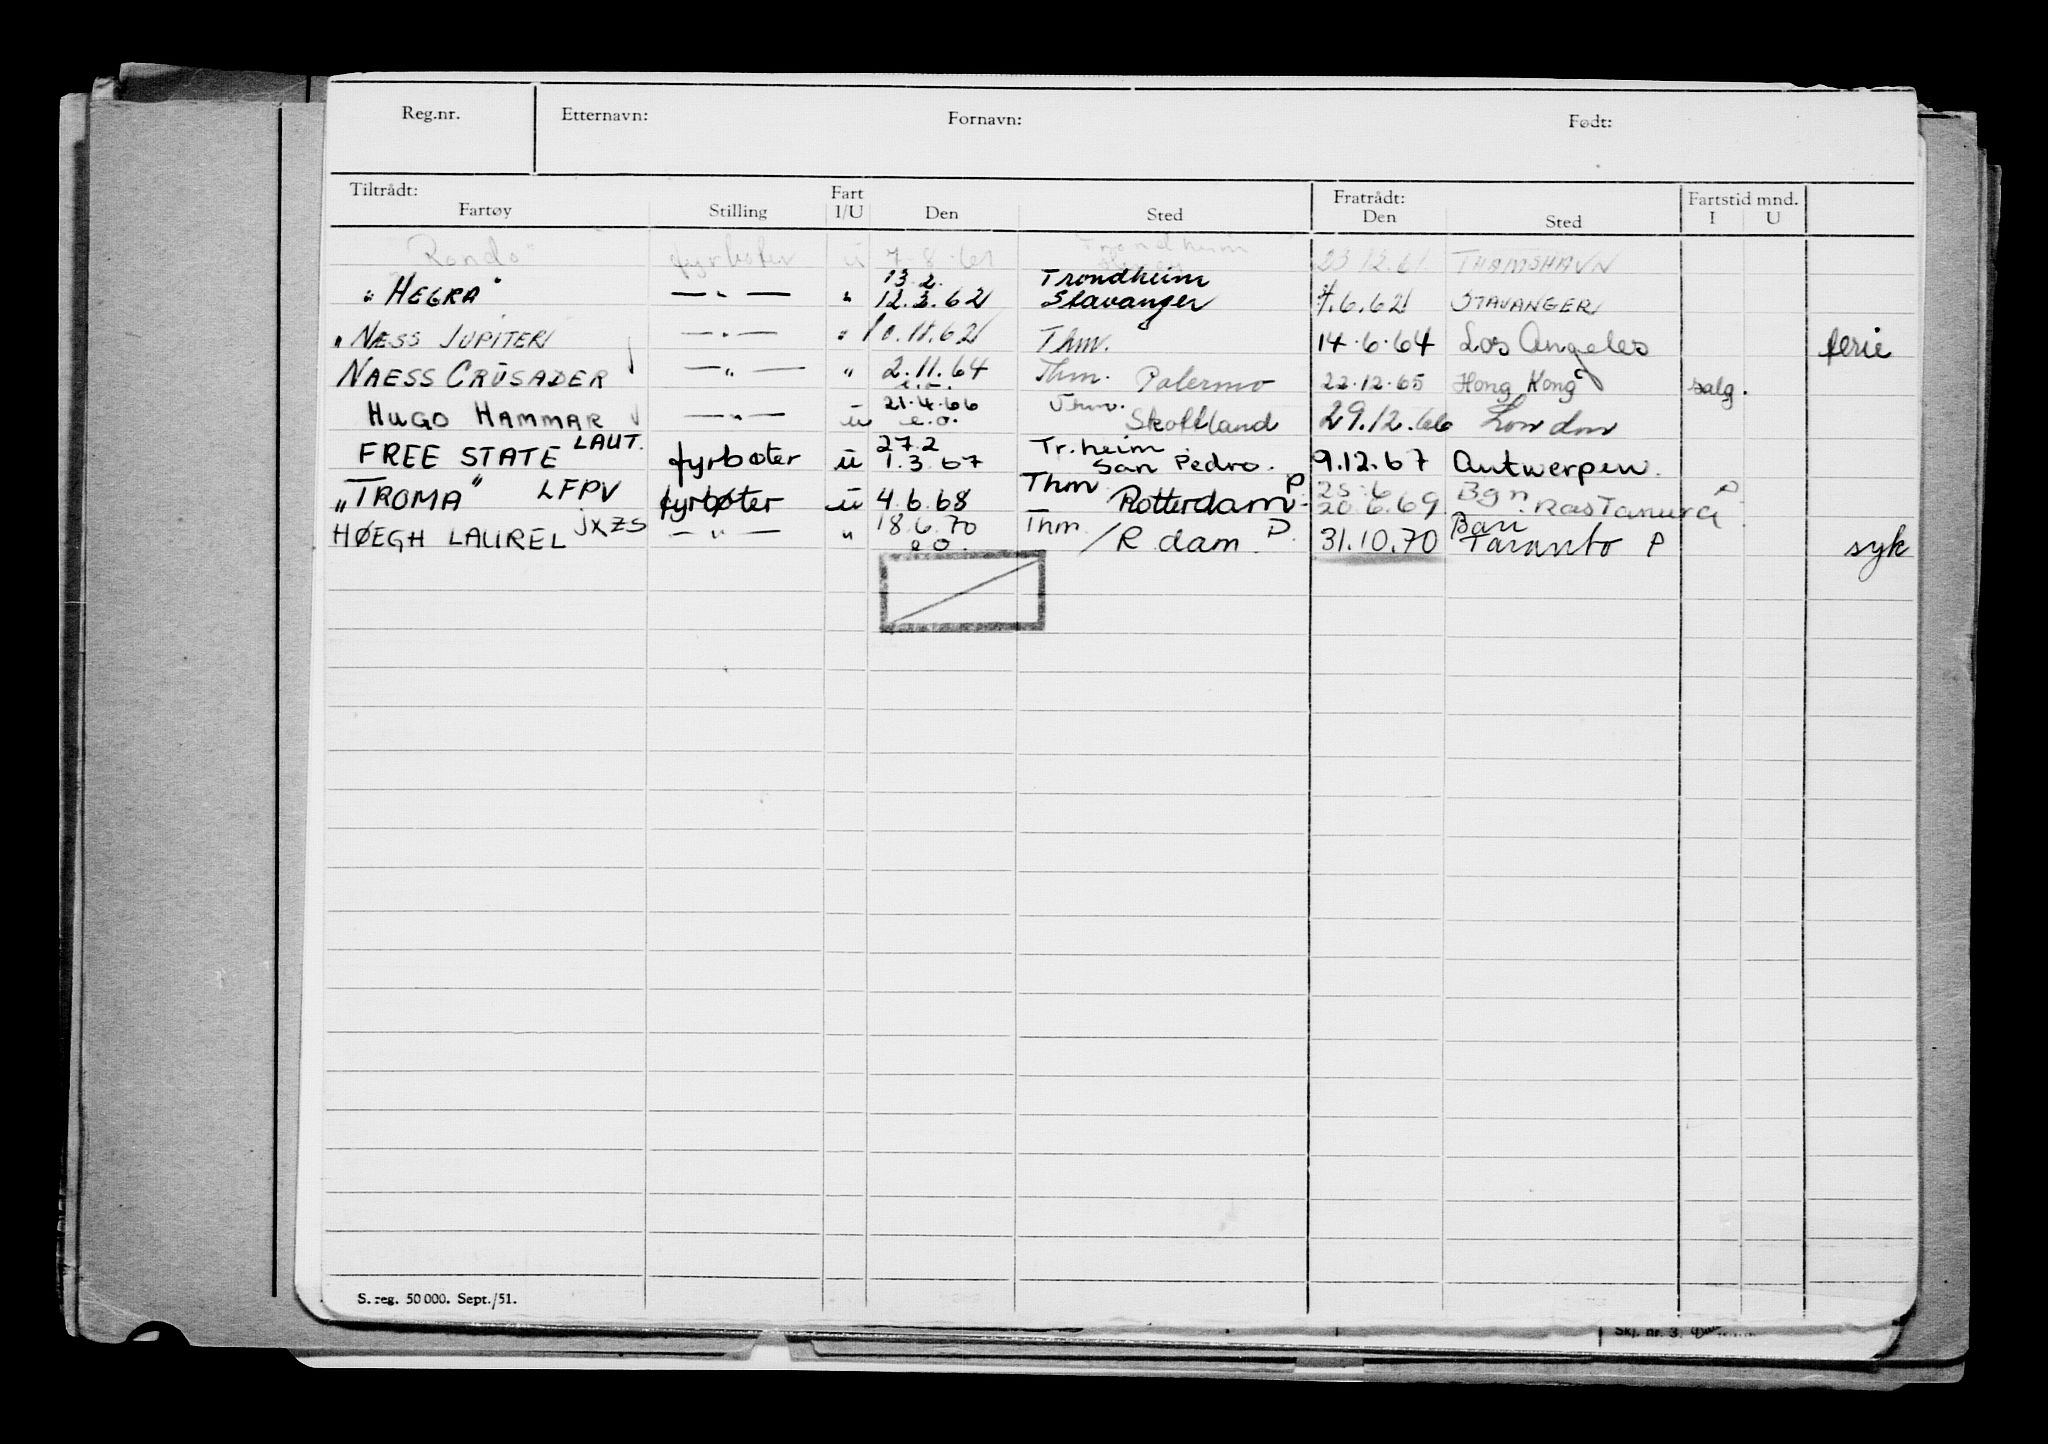 Reg.nr. Etternavn: Fornavn: Født:
Tiltrådt: Fart Fratrådt: Fartstid mnd.
Fartøy Stilling I/U Den Sted Den Sted I U
"Rondo" fyrbøter ü 7.8.61 Trondheim 23.12.61 THAMSHAVN
13.2. Trondheim
"HEGRA" — " — " 12.3.62 Stavanger 7.6.62 STAVANGER
"NÆSS JUPITER — " — " 10.11.62 Thm. 14.6.64 Los Angeles ferie
NAESS CRUSADER — " — " 2.11.64 Thm. Palermo 22.12.65 Hong Kong salg.
e.o.
21.4.66 Thm.
HUGO HAMMAR — " — ü e.o. Skottland 29.12.66 London
LAUT. 27.2 Tr.heim
FREE STATE fyrbøter ü 1.3.67 San Pedro. 9.12.67 Antwerpen.
Thm P 25.6 Bgn P
"TROMA" LFPV fyrbøter ü 4.6.68 Rotterdam- 20.6.69 Ras Tanura
JXZS 18.6.70 Thm Bari
HØEGH LAUREL — " — " e o /R dam. P. 31.10.70 Taranto P syk
S. reg. 50 000. Sept./51.
Skj. nr. 3.